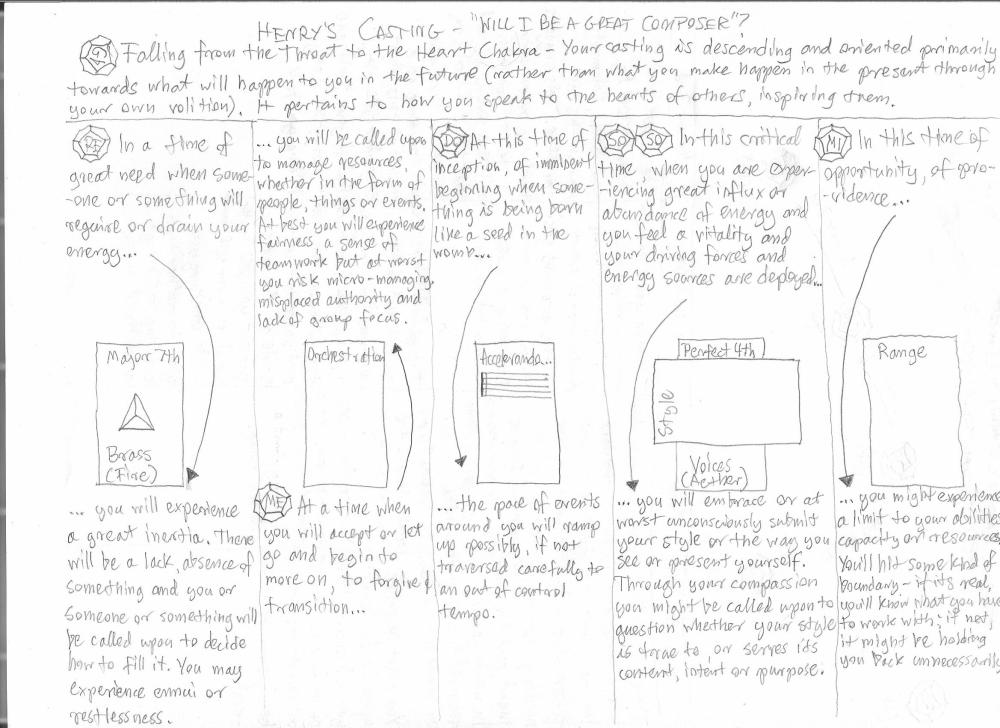 HENRY'S CASTING - "WILL I BE A GREAT COMPOSER"?
Falling from the Throat to the Heart Chakra - Your casting is descending and oriented primarily
towards what will happen to you in the future (rather than what you make happen in the present through
your own volition). It pertains to how you speak to the hearts of others, inspiring them.
RE In a time of
great need when some-
-one or something will
require or drain your
energy...
Major 7th
Brass
(Fire)
... you will experience
a great inertia. There
will be a lack, absence of
something and you or
someone or something will
be called upon to decide
how to fill it. You may
experience ennui or
restlessness.
... you will be called upon
to manage resources,
whether in the form of
people, things or events.
At best you will experience
fairness, a sense of
teamwork but at worst
you risk micro-managing,
misplaced authority and
lack of group focus.
Orchestration
At a time when
you will accept or let
go and begin to
move on, to forgive &
transition...
DO At this time of
inception, of imminent
beginning when some-
thing is being born
like a seed in the
womb...
Accelerando...
... the pace of events
around you will ramp
up possibly, if not
traversed carefully to
an out of control
tempo.
SO SO In this critical
time, when you are exper-
iencing great influx or
abundance of energy and
you feel a vitality and
your driving forces and
energy sources are deployed...
Perfect 4th
Style
Voices
(Aether)
... you will embrace or at
worst unconsciously submit
your style or the way you
see or present yourself.
Through your compassion
you might be called upon to
question whether your style
is true to, or serves its
content, intent or purpose.
MI In this time of
opportunity, of pro-
-vidence...
Range
... you might experience
a limit to your abilities,
capacity or resources.
You'll hit some kind of
boundary - if it's real,
you'll know what you have
to work with; if not,
it might be holding
you back unnecessarily